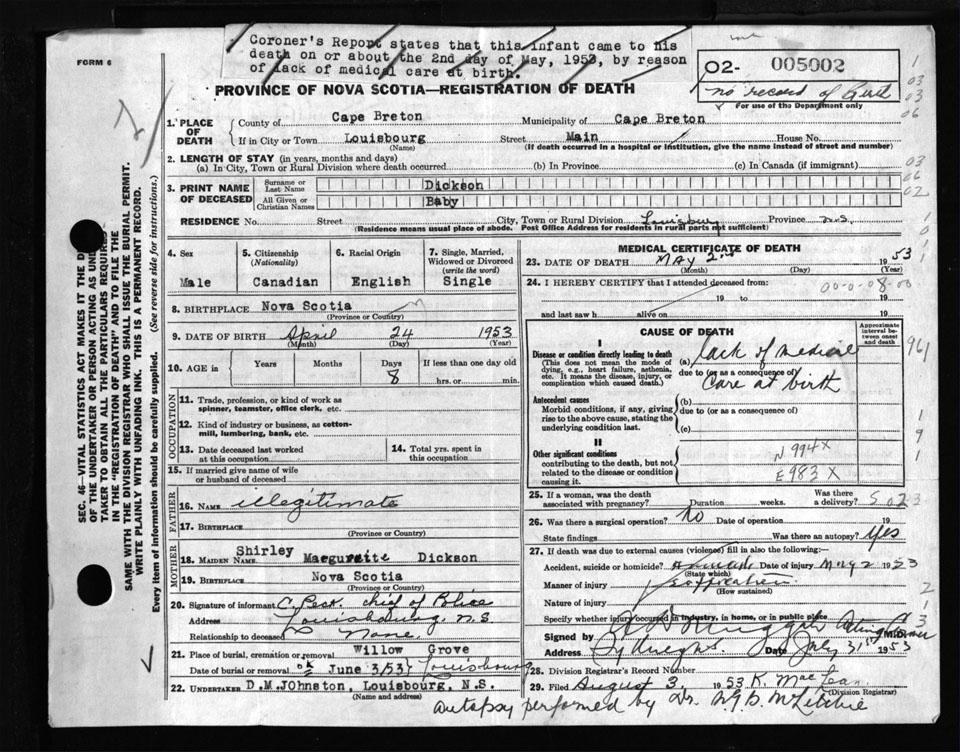 Coroner's Report states that this infant came to his
death on or about the 2nd day of May, 1953, by reason
of lack of medical care at birth.
FORM 6
O2- 005002
no record of birth
For use of the Department only
PROVINCE OF NOVA SCOTIA—REGISTRATION OF DEATH
1. PLACE OF DEATH
County of Cape Breton Municipality of Cape Breton
If in City or Town Louisbourg Street Main House No.
(Name) (If death occurred in a hospital or institution, give the name instead of street and number)
2. LENGTH OF STAY (in years, months and days)
(a) In City, Town or Rural Division where death occurred (b) In Province (c) In Canada (if immigrant)
3. PRINT NAME OF DECEASED
Surname or Last Name Dickson
All Given or Christian Names Baby
RESIDENCE No. Street City, Town or Rural Division Louisburg Province N.S.
(Residence means usual place of abode. Post Office Address for residents in rural parts not sufficient)
4. Sex
Male
5. Citizenship (Nationality)
Canadian
6. Racial Origin
English
7. Single, Married, Widowed or Divorced (write the word)
Single
8. BIRTHPLACE Nova Scotia
(Province or Country)
9. DATE OF BIRTH April 24 1953
(Month) (Day) (Year)
10. AGE in Years Months Days If less than one day old
8 hrs. or min.
OCCUPATION
11. Trade, profession, or kind of work as
spinner, teamster, office clerk, etc.
12. Kind of industry or business, as cotton-
mill, lumbering, bank, etc.
13. Date deceased last worked at this occupation
14. Total yrs. spent in this occupation
15. If married give name of wife
or husband of deceased
FATHER
16. NAME illegitimate
17. BIRTHPLACE
(Province or Country)
MOTHER
18. MAIDEN NAME Shirley Dickson
19. BIRTHPLACE Nova Scotia
(Province or Country)
20. Signature of informant chief of Police
Address Louisbourg, N.S.
Relationship to deceased None
21. Place of burial, cremation or removal Willow Grove
Date of burial or removal June 3/53 Louisbourg
22. UNDERTAKER D.M.JOhnston, Louisbourg, N.S.
(Name and address)
MEDICAL CERTIFICATE OF DEATH
23. DATE OF DEATH MAY 2nd 1953
(Month) (Day) (Year)
24. I HEREBY CERTIFY that I attended deceased from:
19 to 19
and last saw h alive on 19
CAUSE OF DEATH
Approximate interval between onset and death
I
Disease or condition directly leading to death
(This does not mean the mode of
dying, e.g., heart failure, asthenia,
etc. It means the disease, injury, or
complication which caused death.)
(a) Lack of medical
due to (or as a consequence of)
care at birth
Antecedent causes
Morbid conditions, if any, giving
rise to the above cause, stating the
underlying condition last.
(b)
due to (or as a consequence of)
(c)
II
Other significant conditions
contributing to the death, but not
related to the disease or condition
causing it.
N 994X
E 983X
25. If a woman, was the death associated with pregnancy? Duration weeks. Was there a delivery?
26. Was there a surgical operation? No Date of operation 19
State findings Was there an autopsy? Yes
27. If death was due to external causes (violence) fill in also the following:—
Accident, suicide or homicide? Date of injury May 2 1953
(State which)
Manner of injury suffocation
(How sustained)
Nature of injury
Specify whether injury occurred in industry, in home, or in public place
Signed by M.D.
Address Sydney N.S. Date July 31st 1953
28. Division Registrar's Record Number
29. Filed August 3, 1953 K. MacLean
(Division Registrar)
autopsy performed by Dr.
SEC. 46—VITAL STATISTICS ACT MAKES IT THE
OF THE UNDERTAKER OR PERSON ACTING AS
TAKER TO OBTAIN ALL THE PARTICULARS REQUIRED
IN THE "REGISTRATION OF DEATH" AND TO FILE THE
SAME WITH THE DIVISION REGISTRAR WHO SHALL ISSUE THE BURIAL PERMIT.
WRITE PLAINLY WITH UNFADING INK. THIS IS A PERMANENT RECORD.
Every item of information should be carefully supplied. (See reverse side for instructions.)